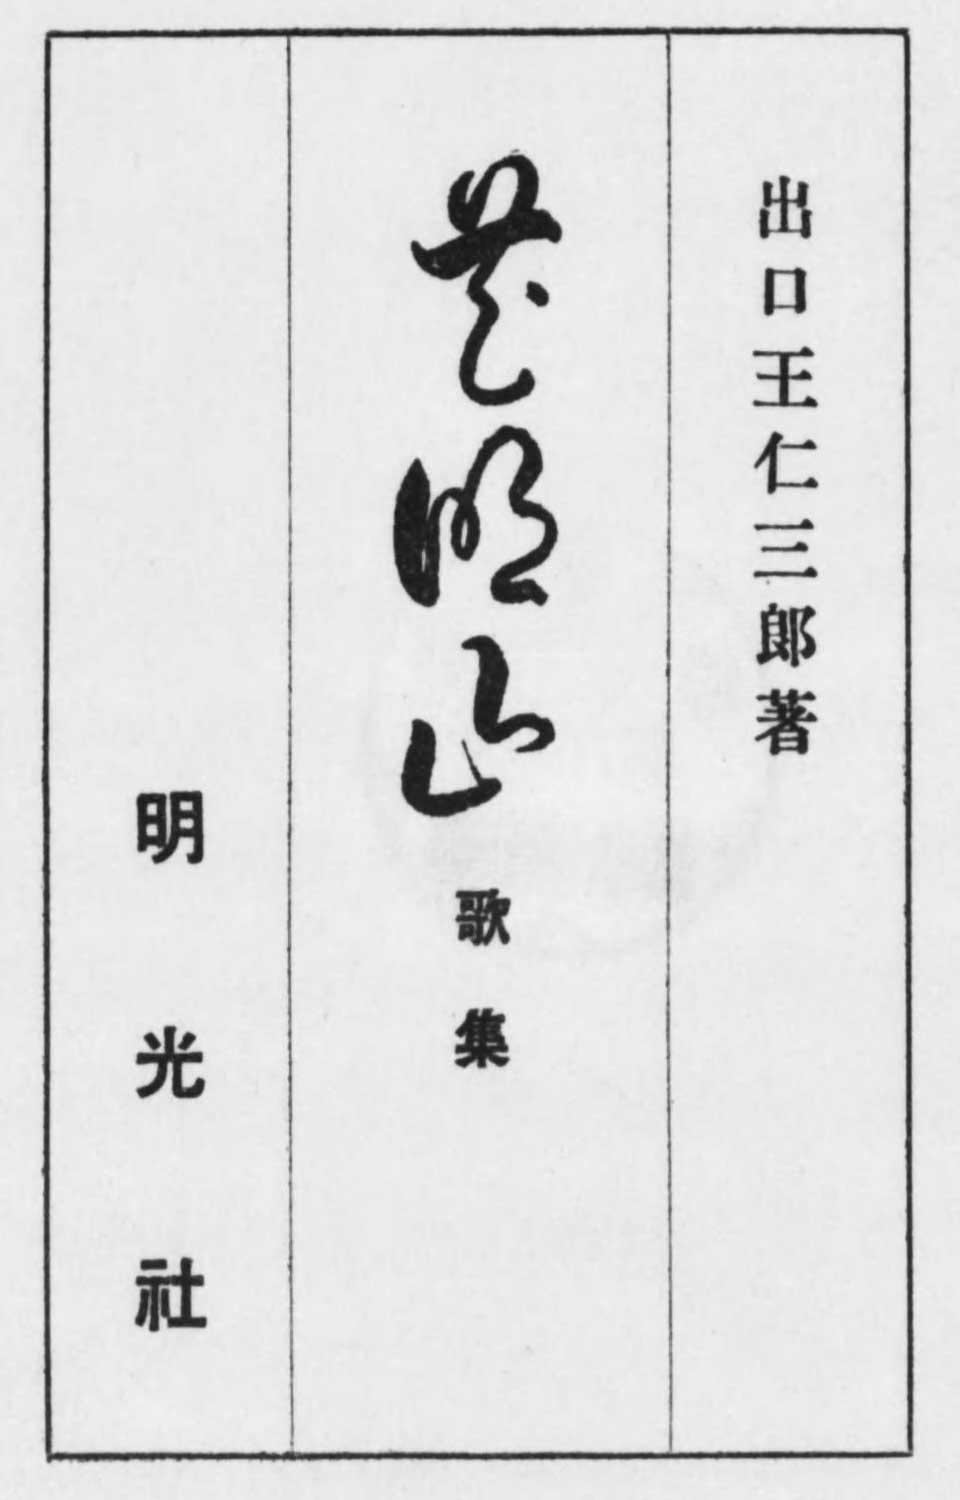 出口王仁三郎著
花明山
歌集
明光社